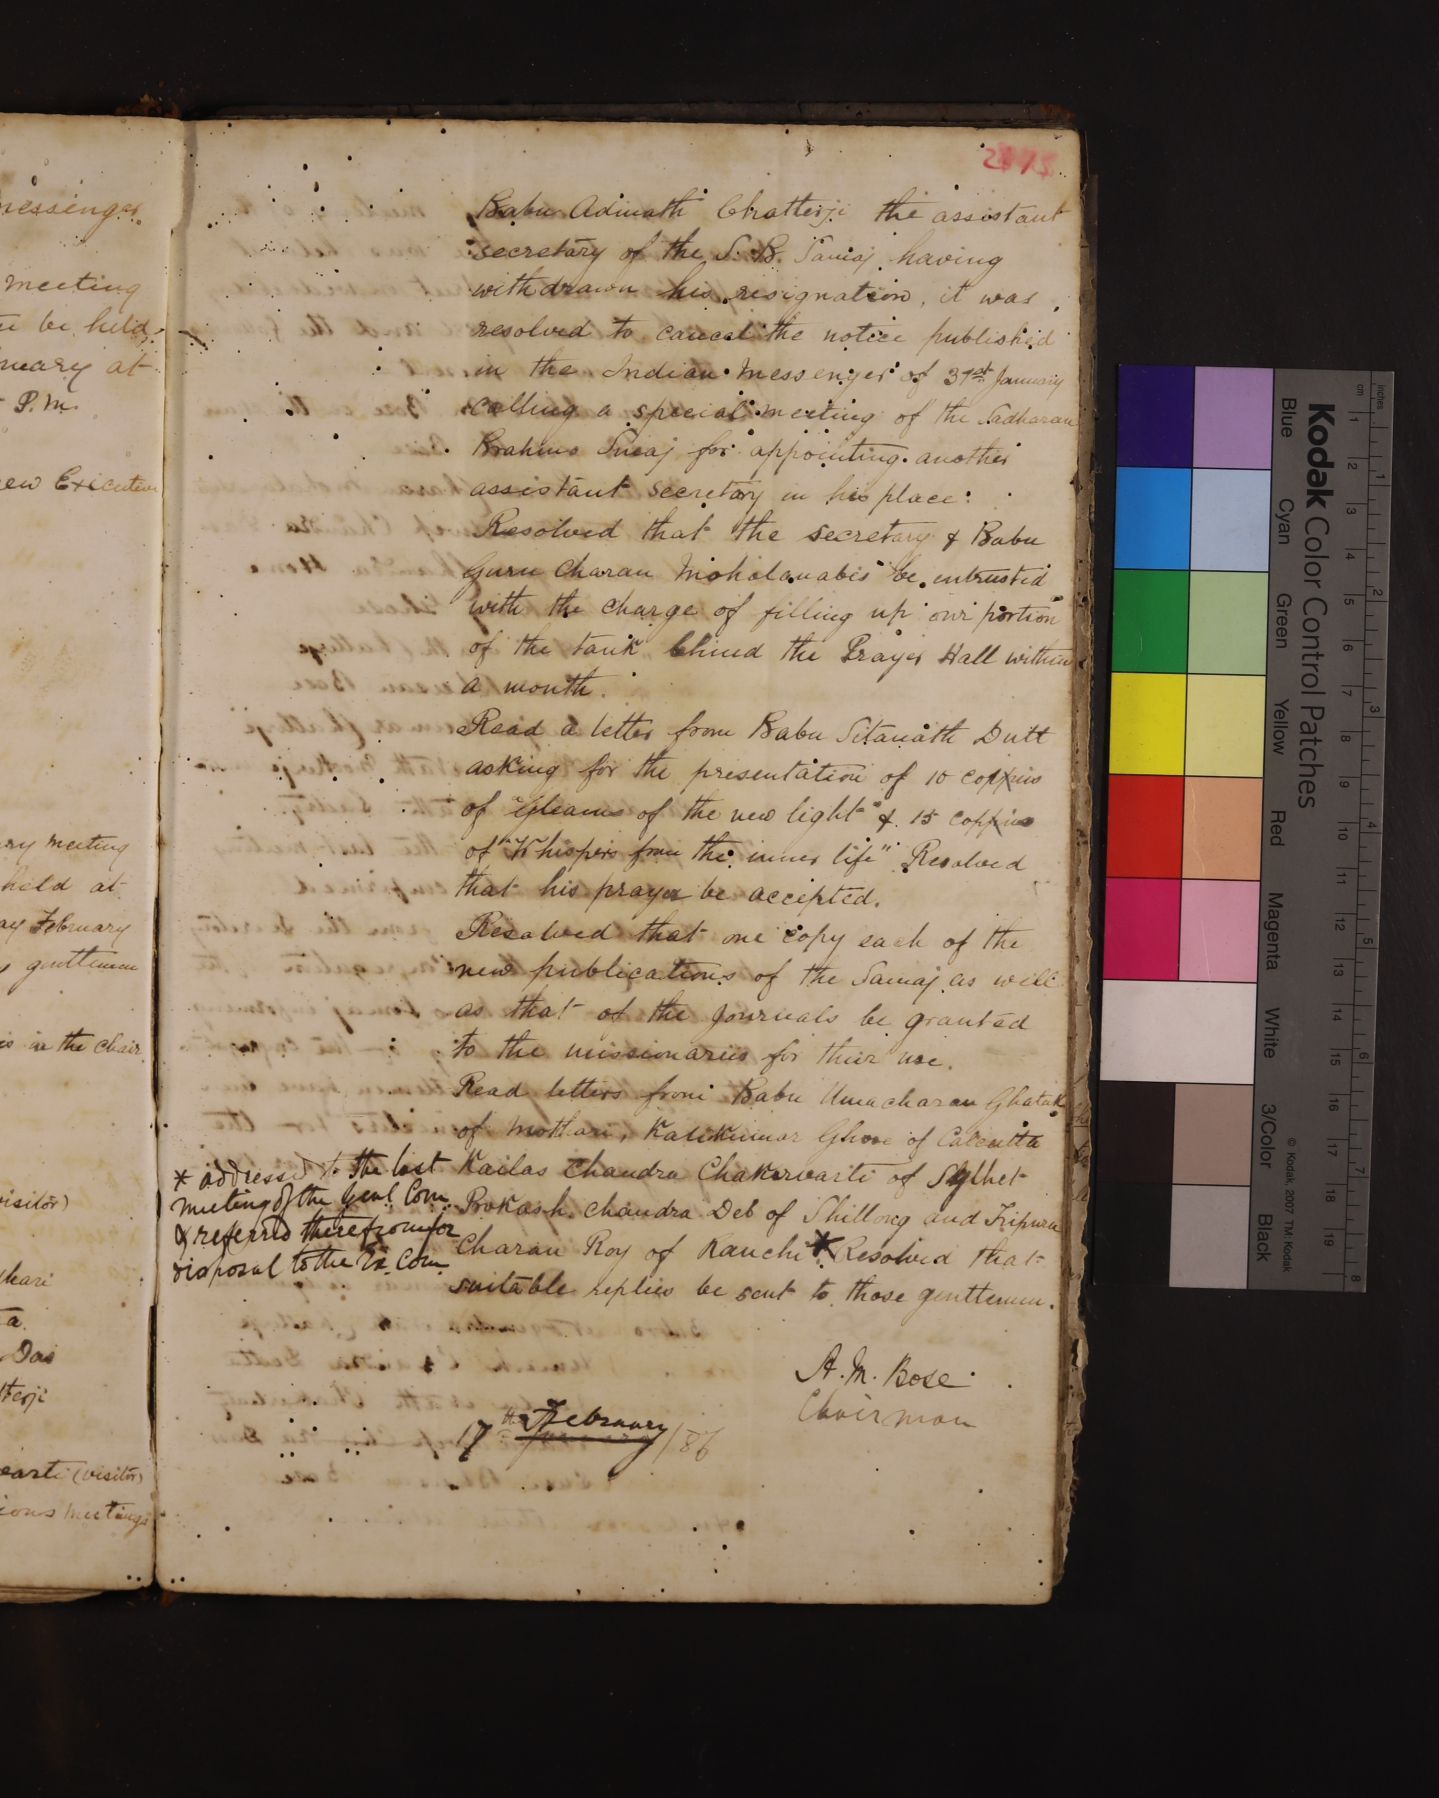 messenger
meeting
be held
nuary at
P.M.
new Executive
ary meeting
held at
ay February
gentlemen
is in the chair
visitor)
hari
ta.
Das
tterji
earti (visitor)
ions meetings
Babu Adinath Chatterji the assistant
secretary of the S. B. Samaj having
withdrawn his resignation, it was
resolved to cancel the notice published
in the Indian Messenger of 31st January
calling a special meeting of the Sadharan
Brahmo Smaj for appointing another
assistant secretary in his place.
Resolved that the secretary & Babu
Guru Charan Moholanabis be entrusted
with the charge of filling up our portion
of the tank behind the Prayer Hall within
a month.
Read a letter from Babu Sitanath Dutt
asking for the presentation of 10 coppies
of "Gleams of the new light" & 15 coppies
of "Whispers from the inner life" Resolved
that his prayer be accepted.
Resolved that one copy each of the
new publications of the Samaj as well
as that of the Journals be granted
to the missionaries for their use.
Read letters from Babu Umacharan Ghatak
of Mothari, Kalikumar Ghose of Calcutta
Kailas Chandra Chakervarti of Sylhet
Prokash Chandra Deb of Shillong and Tripura
Charan Roy of Ranchi * Resolved that
suitable replies be sent to those gentlemen.
* addressed to the last
meeting of the Genl. Com.
& referred therefrom for
disposal to the Ex. Com.
A. M. Bose.
Chairman
17th February /86
Kodak Color Control Patches
Blue
Cyan
Green
Yellow
Red
Magenta
White
3/Color
Black
© Kodak, 2007 TM: Kodak
inches
1 2 3 4 5 6 7 8
cm
1 2 3 4 5 6 7 8 9 10 11 12 13 14 15 16 17 18 19